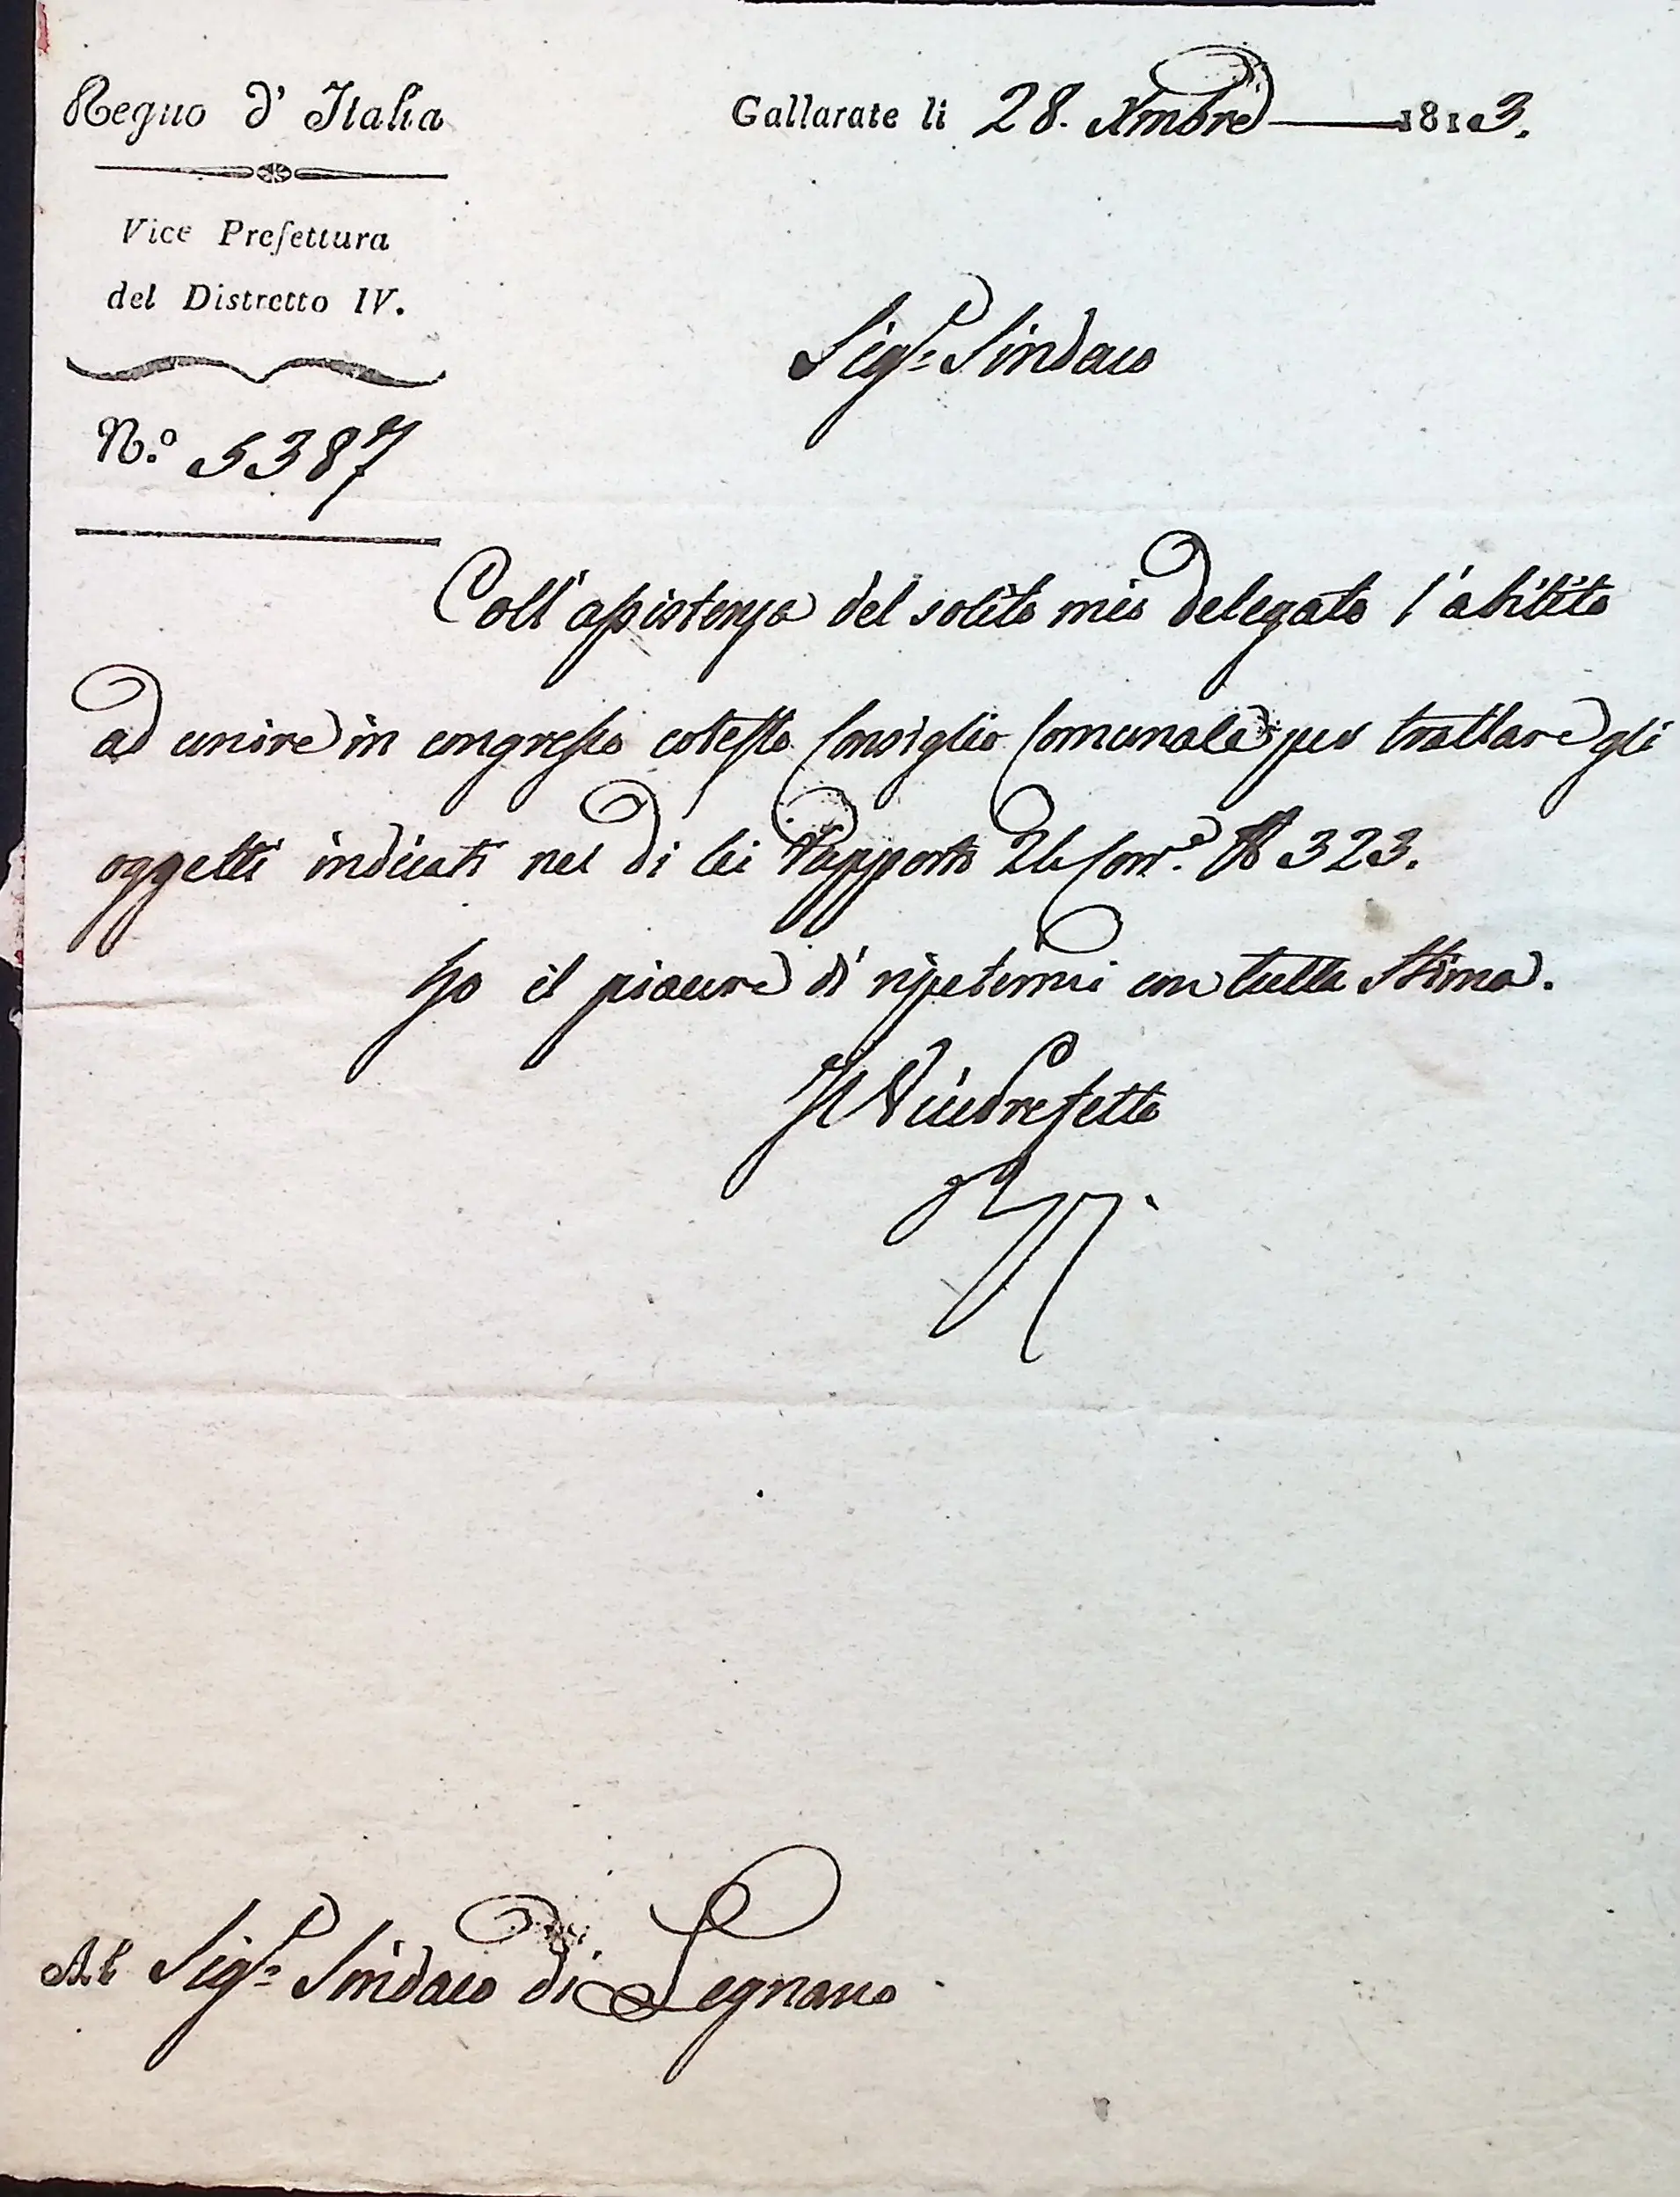 Regno d' Italia
Gallarate li 28. Xmbre 1813.
Vice Prefettura
del Distretto IV.
N.º 5387
Sigr. Sindaco
Coll'assistenza del solito mio delegato l'abilito
ad unire in congresso cotesto Consiglio Comunale per trattare gli
oggetti indicati nel di lei Rapporto 26 Corre. N 323.
Ho il piacere di ripetermi con tutta stima.
Il Viceprefetto
Al Sigr. Sindaco di Legnano